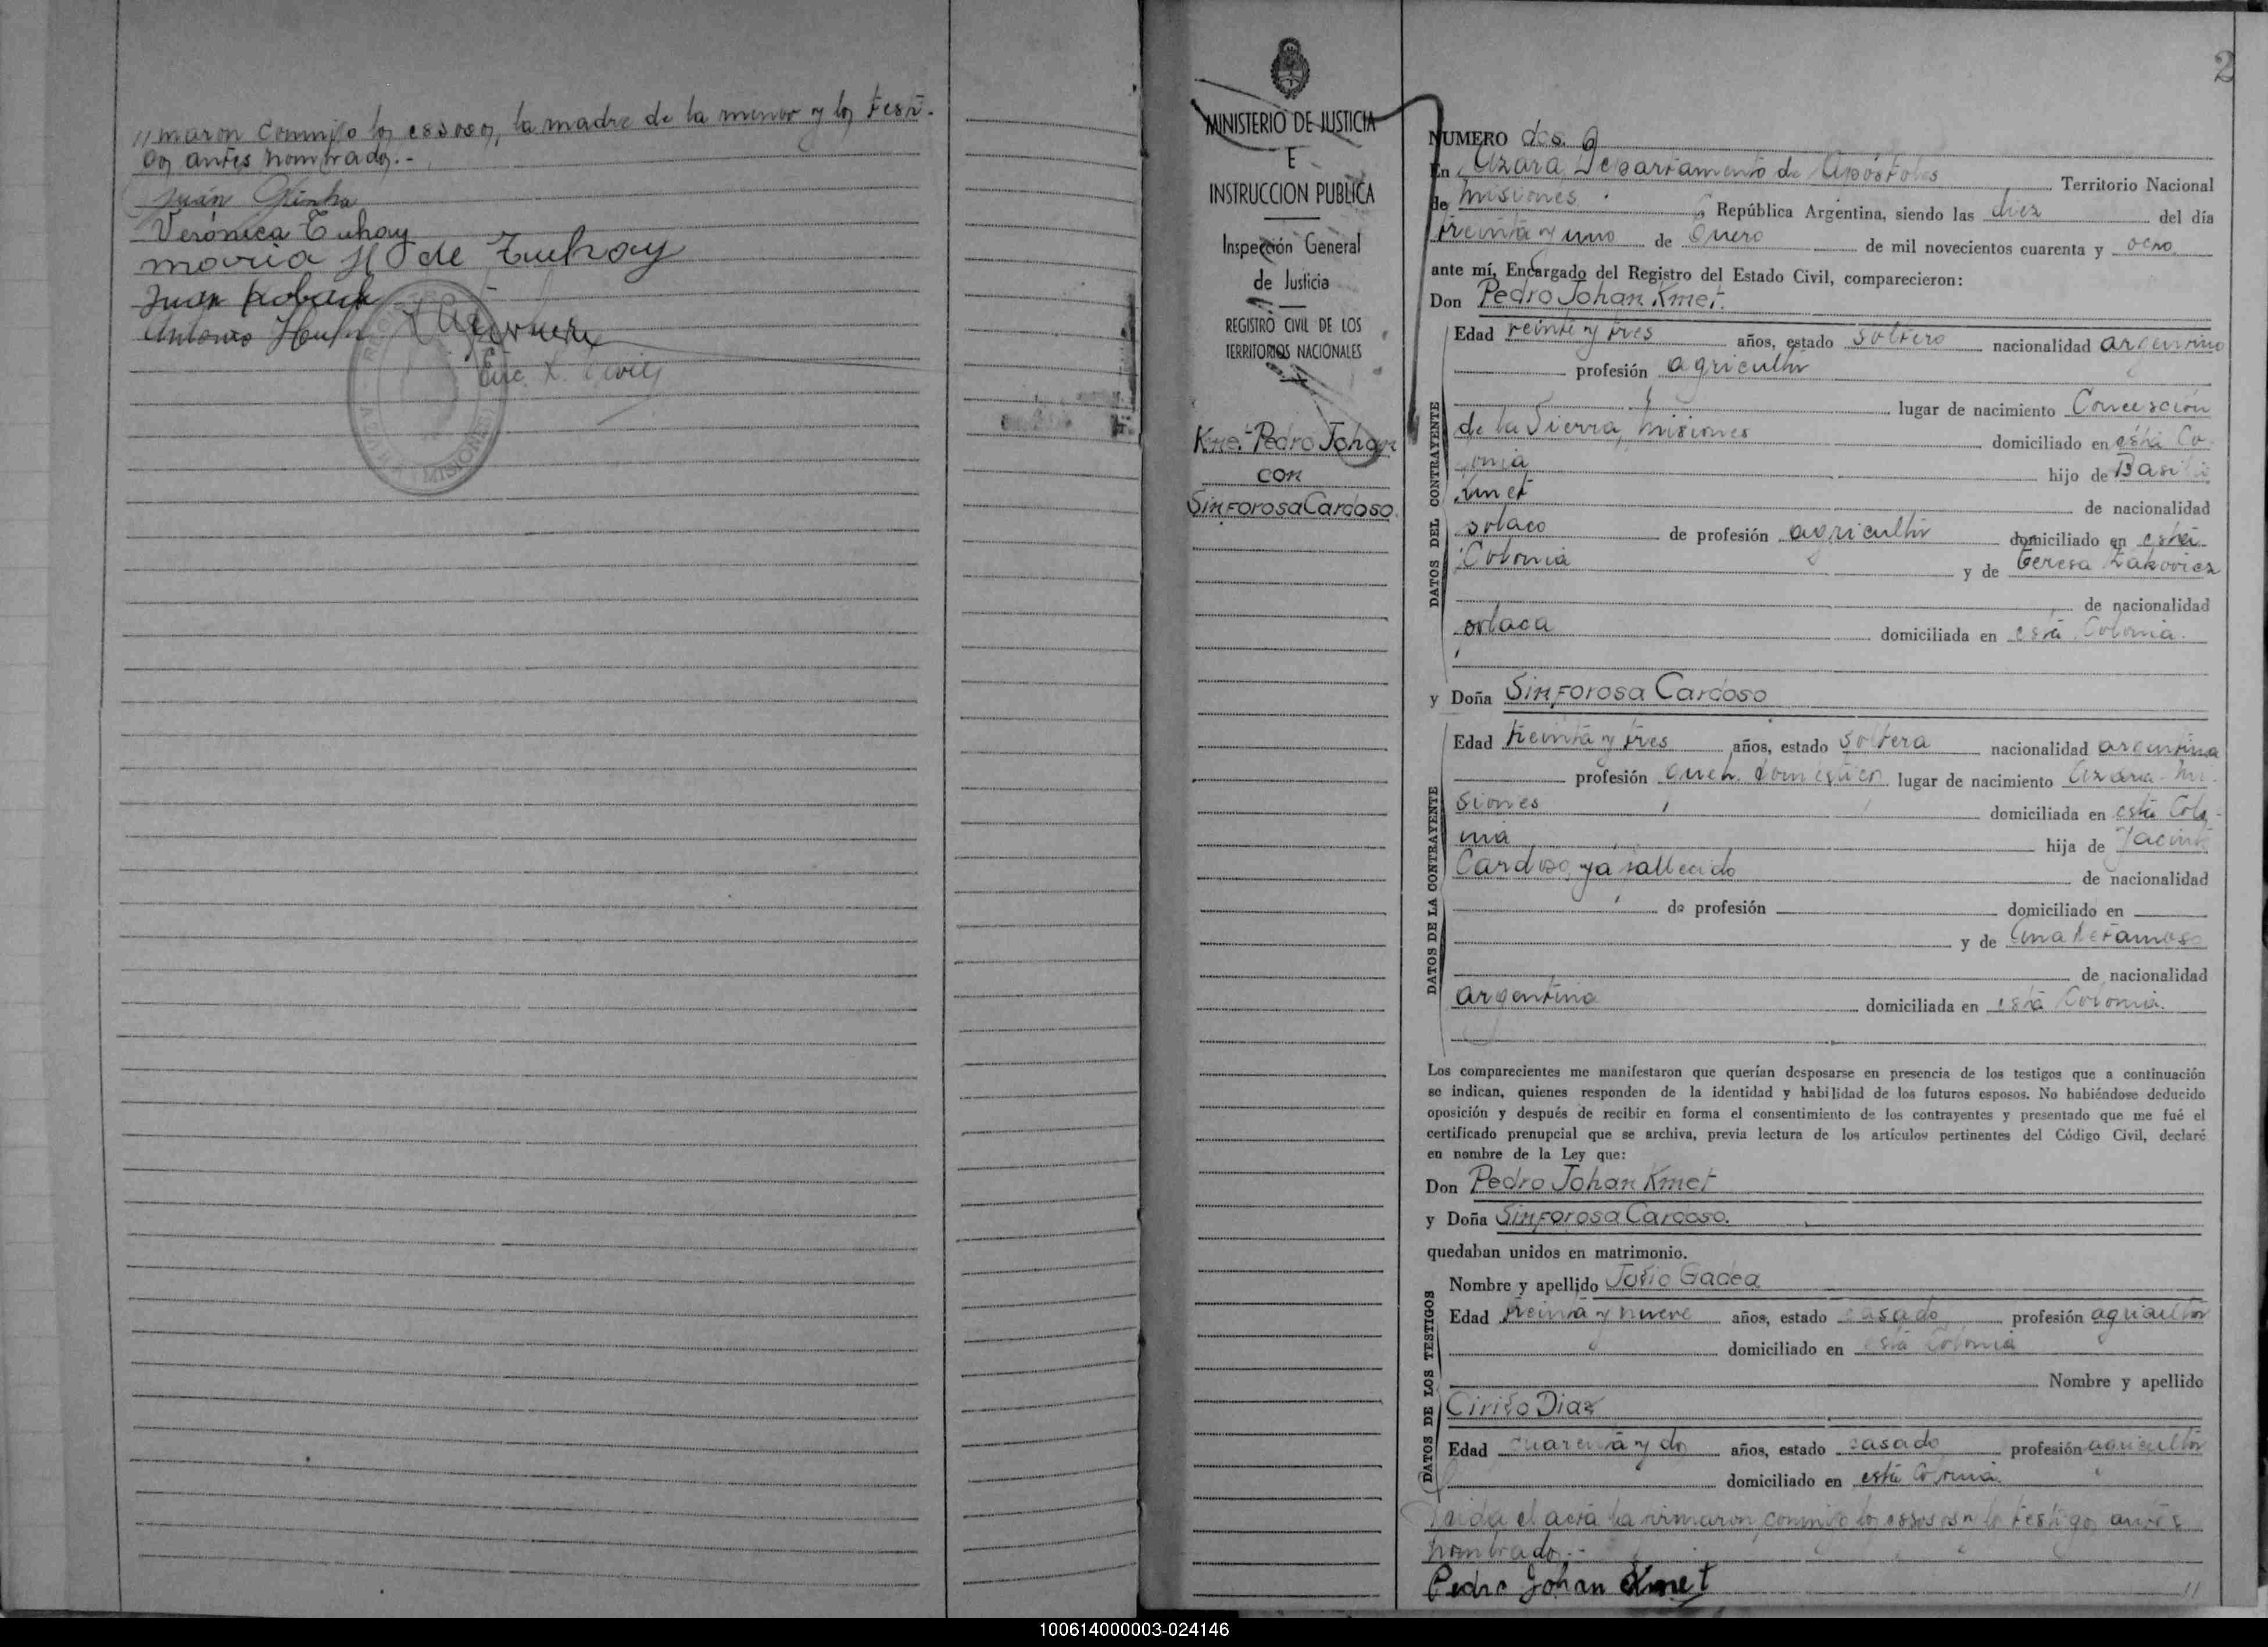 //maron conmigo los esposos, la madre de la menor y los testi-
gos antes nombrados.-
Juan Glinka
Verónica Tuhay
maria H de Tuhay
Juan
Antonio
Enc. R. Civil
MISIONES
2
MINISTERIO DE JUSTICIA
E
INSTRUCCION PUBLICA
Inspección General
de Justicia
REGISTRO CIVIL DE LOS
TERRITORIOS NACIONALES
Kmet Pedro Johan
con
Sinforosa Cardoso.
NUMERO dos.
En Azara, Departamento de Apóstoles Territorio Nacional
de Misiones, República Argentina, siendo las diez del día
treinta y uno de Enero de mil novecientos cuarenta y ocho
ante mí, Encargado del Registro del Estado Civil, comparecieron:
Don Pedro Johan Kmet.
DATOS DEL CONTRAYENTE
Edad veinte y tres años, estado soltero nacionalidad argentino
profesión agricultor
lugar de nacimiento Concepción
de la Sierra, Misiones domiciliado en esta Co-
lonia hijo de Basilio
Kmet de nacionalidad
polaco de profesión agricultor domiciliado en esta
Colonia y de Teresa Zakovicz
de nacionalidad
polaca domiciliada en esta Colonia.
y Doña Sinforosa Cardoso
DATOS DE LA CONTRAYENTE
Edad treinta y tres años, estado soltera nacionalidad argentina
profesión queh. domésticos lugar de nacimiento Azara-Mi-
siones domiciliada en esta Colo-
nia hija de Jacinto
Cardoso, ya fallecido de nacionalidad
de profesión domiciliado en
y de Ana Retamoso
de nacionalidad
argentina domiciliada en esta Colonia.
Los comparecientes me manifestaron que querían desposarse en presencia de los testigos que a continuación
se indican, quienes responden de la identidad y habilidad de los futuros esposos. No habiéndose deducido
oposición y después de recibir en forma el consentimiento de los contrayentes y presentado que me fué el
certificado prenupcial que se archiva, previa lectura de los artículos pertinentes del Código Civil, declaré
en nombre de la Ley que:
Don Pedro Johan Kmet
y Doña Sinforosa Cardoso.
quedaban unidos en matrimonio.
DATOS DE LOS TESTIGOS
Nombre y apellido Julio Gadea
Edad treinta y nueve años, estado casado profesión agricultor
domiciliado en esta Colonia
Nombre y apellido
Cirilo Diaz
Edad cuarenta y dos años, estado casado profesión agricultor
domiciliado en esta Colonia.
Leida el acta la firmaron conmigo los esposos y los testigos antes
nombrados.-
Pedro Johan Kmet
//
100614000003-024146